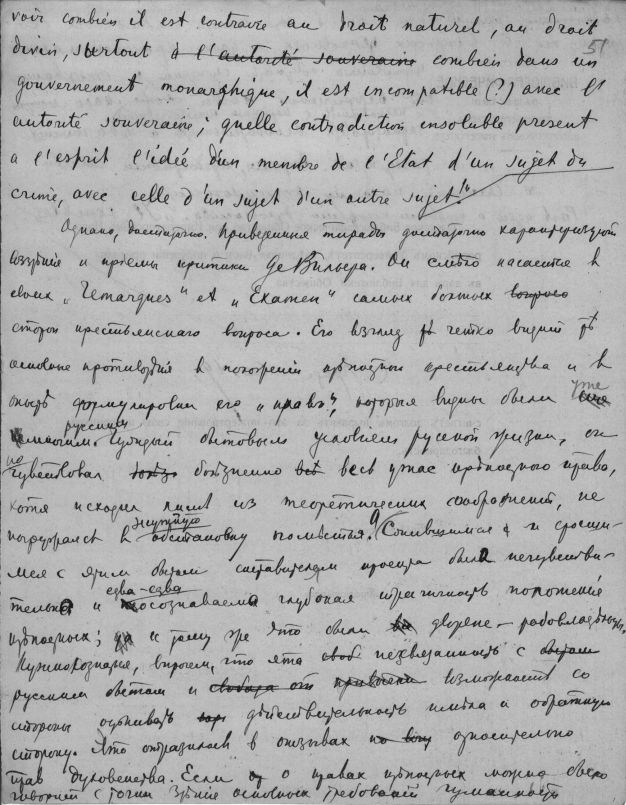 voir combien il est contraire au droit naturel, au droit
51
divin, surtout à l'autorité souveraine combien dans un
gouvernement monarghique, il est incompatible (?) avec l'
autorité souveraine; quelle contradiction insoluble present
a l'esprit l'idée d'un membre de l'Etat d'un sujet du
crime, avec celle d'un sujet d'un autre sujet!"
Однако, достаточно. Приведенные тирады достаточно характеризуют
воззрѣния и приемы критики де Вильера. Он смѣло касается в
своих „Remarques" et „Examen" самых боевых вопросо
сторон крестьянскаго вопроса. Его взгляд четко видит
основные противорѣчия в положении крѣпостного крестьянства и в
формулировки его „прав", которыя видны были уже
многим русским. Чуждый бытовым условиям русской жизни, он
но чувствовал болѣзненно весь ужас крѣпостного права,
хотя исходил лишь из теоретических соображений, не
погружаясь в обстановку помѣстья. Сжившимися и сросши-
мися с этим бытом составителям проекта была нечувстви-
тельна и едва-едва осознаваема глубокая трагичность положения
крѣпостных; и к тому же это были дворяне – рабовладѣльцы.
впрочем, что эта несвязанность с бытом
русским бытом и свобода от привычки возможность со
стороны оцѣнивать дѣйствительность имѣла и обратную
сторону. Это отразилось в отзывах относительно
прав духовенства. Если о правах крѣпостных можно было
говорить с точки зрѣния основных требований гуманности